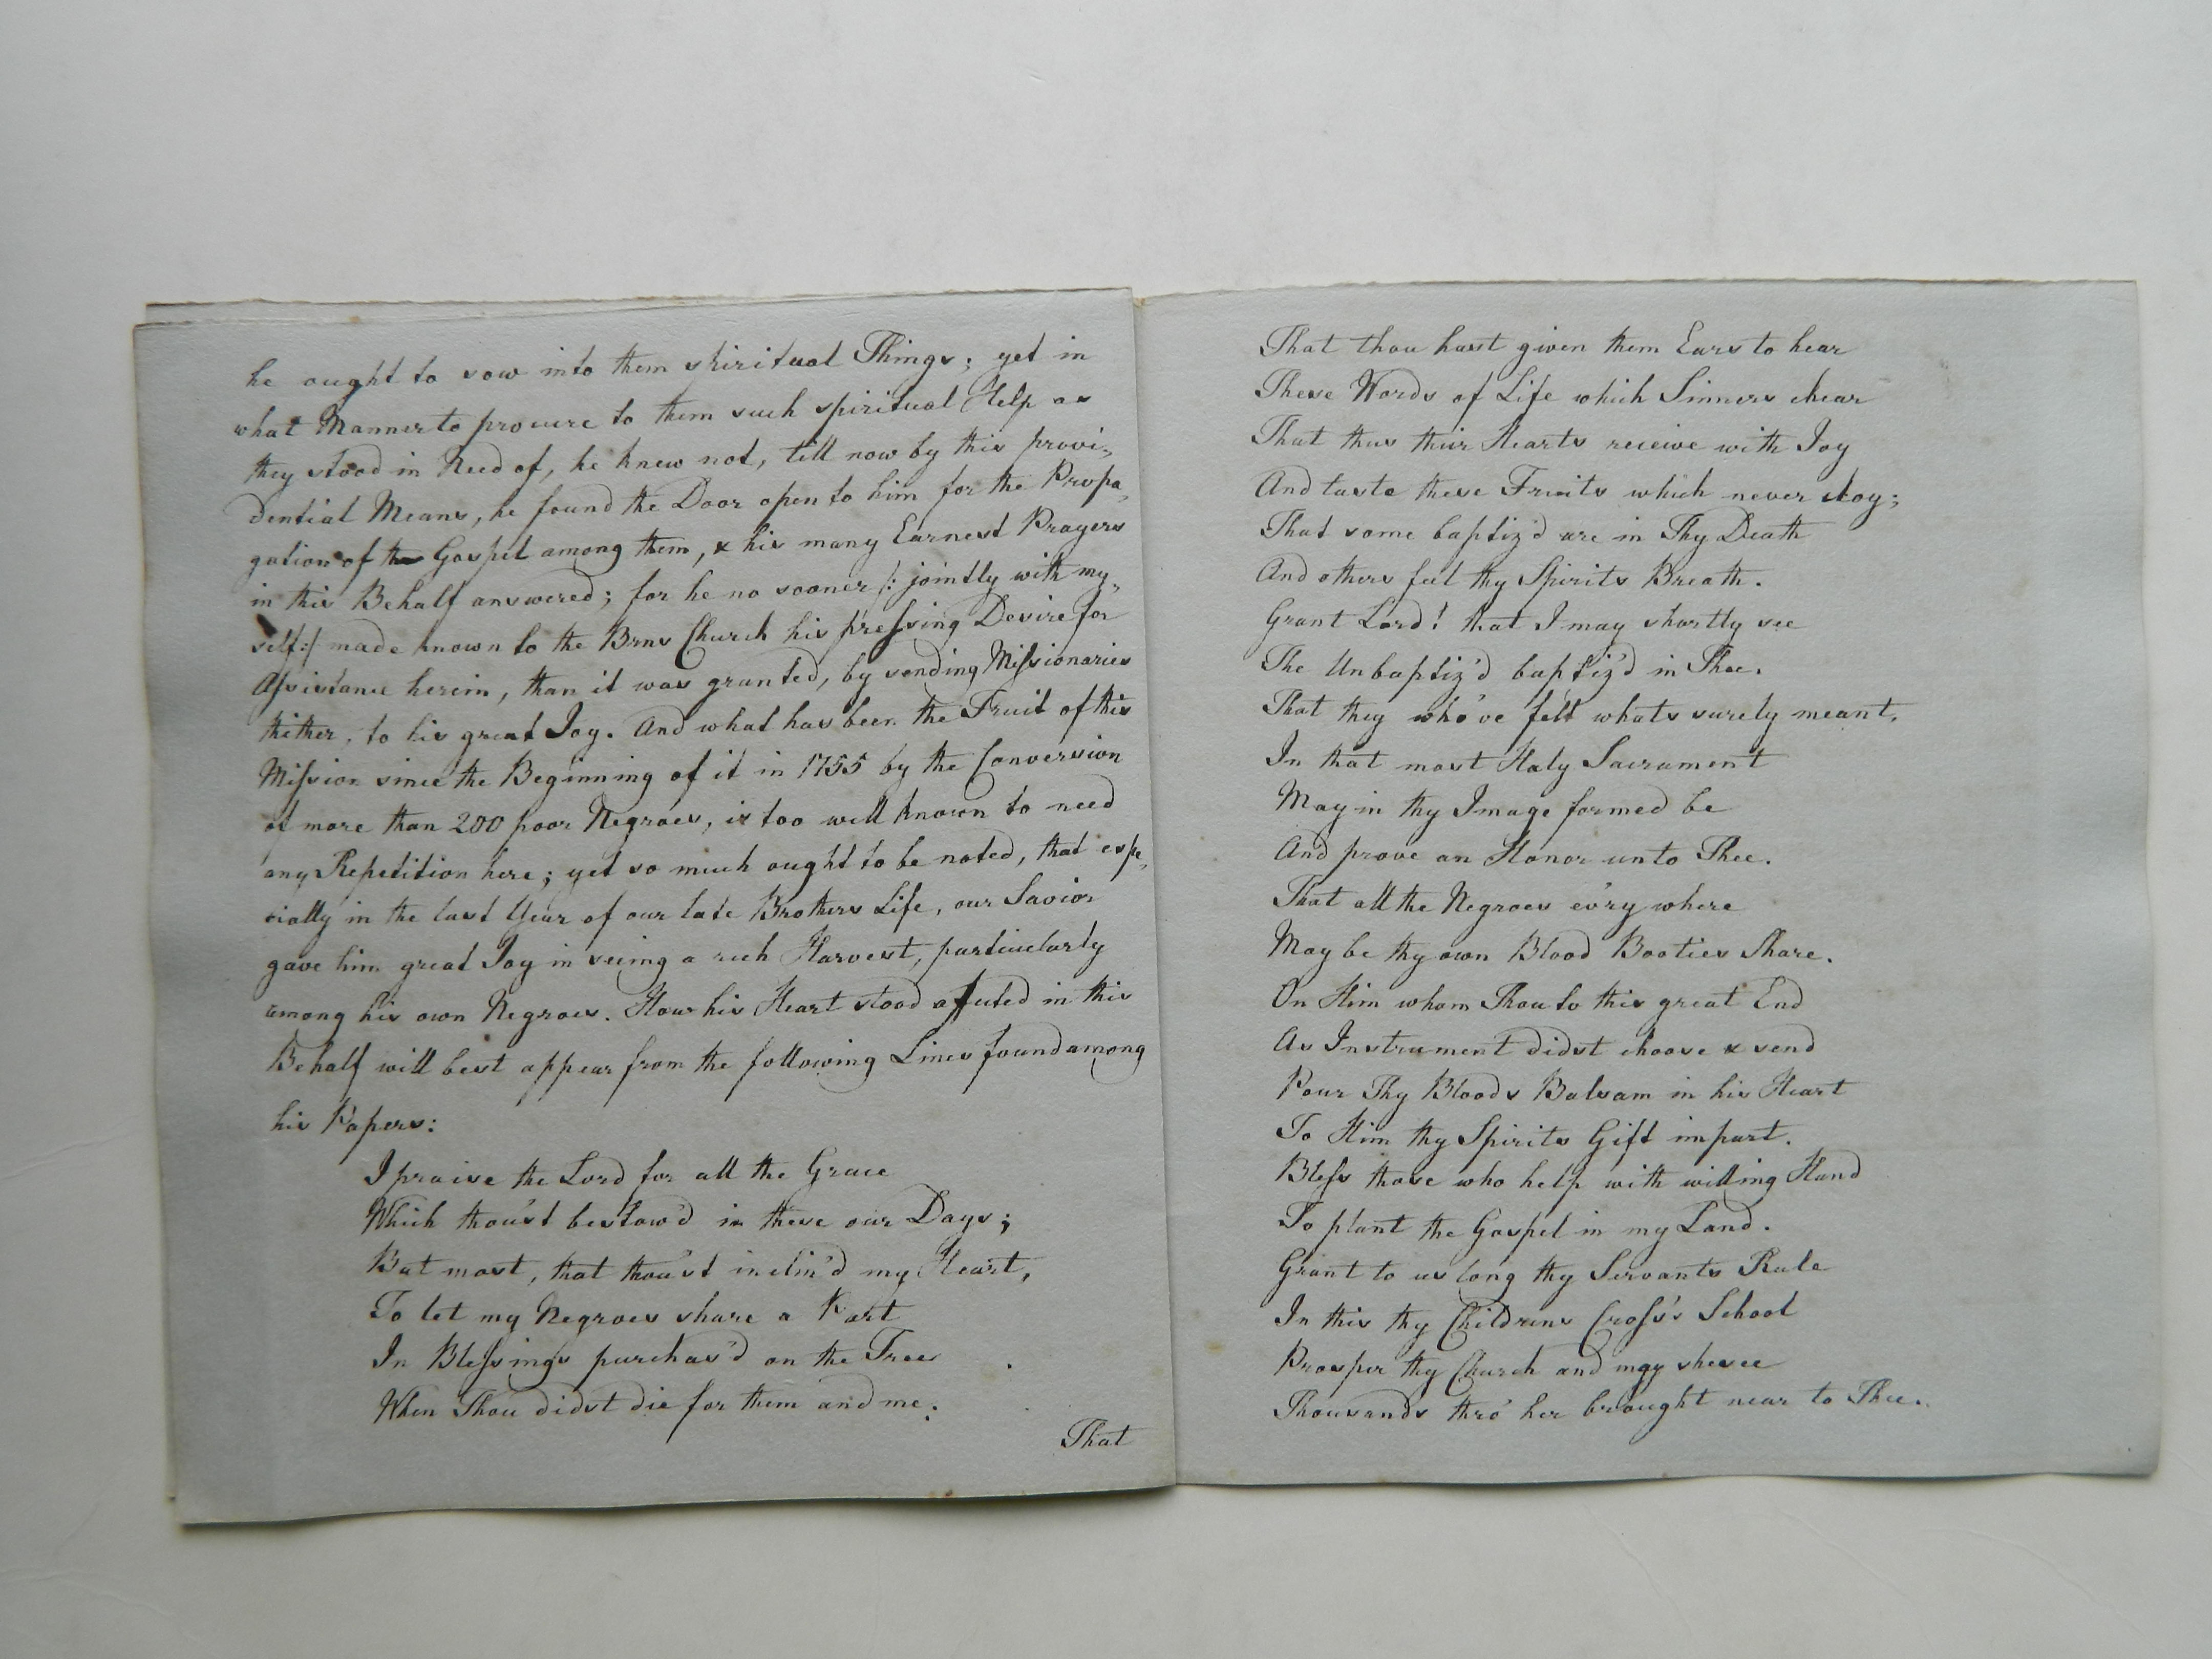 he ought to sow into them spiritual Things; yet in
what Manner to procure to them such spiritual Help as
they stood in Need of, he knew not, till now by this provi„
dential Means, he found the Door open to him for the Propa„
gation of the Gospel among them, & his many Earnest Prayers
in this Behalf answered; for he no sooner /: jointly with my„
self:/ made known to the Brns Church his pressing Desire for
Assistance herein, than it was granted, by sending Missionaries
thither, to his great Joy. And what has been the Fruit of this
Mission since the Beginning of it in 1755 by the Conversion
of more than 200 poor Negroes, is too well known to need
any Repetition here; yet so much ought to be noted, that espe„
cially in the last Year of our late Brothers Life, our Savior
gave him great Joy in seeing a rich Harvest, particularly
among his own Negroes. How his Heart stood affected in this
Behalf will best appear from the following Lines found among
his Papers:
I praise the Lord for all the Grace
Which thou'st bestow'd in these our Days;
But most, that thou'st inclin'd my Heart,
To let my Negroes share a Part
In Blessings purchas'd on the Tree
When Thou didst die for them and me;
That
That thou hast given them Ears to hear
These Words of Life which Sinners chear
That thus their Hearts receive with Joy
And taste these Fruits which never cloy;
That some baptiz'd are in Thy Death
And others feel thy Spirits Breath.
Grant Lord! that I may shortly see
The Unbaptiz'd baptiz'd in Thee.
That they who've felt whats surely meant,
In that most Holy Sacrament
May in thy Image formed be
And prove an Honor unto Thee.
That all the Negroes ev'ry where
May be thy own Blood Booties Share.
On Him whom Thou to this great End
As Instrument didst choose & send
Pour Thy Bloods Balsam in his Heart
To Him thy Spirits Gift impart.
Bless those who help with willing Hand
To plant the Gospel in my Land.
Grant to us long thy Servants Rule
In this thy Childrens Cross's School
Prosper thy Church and may she see
Thousands thro' her brought near to Thee.